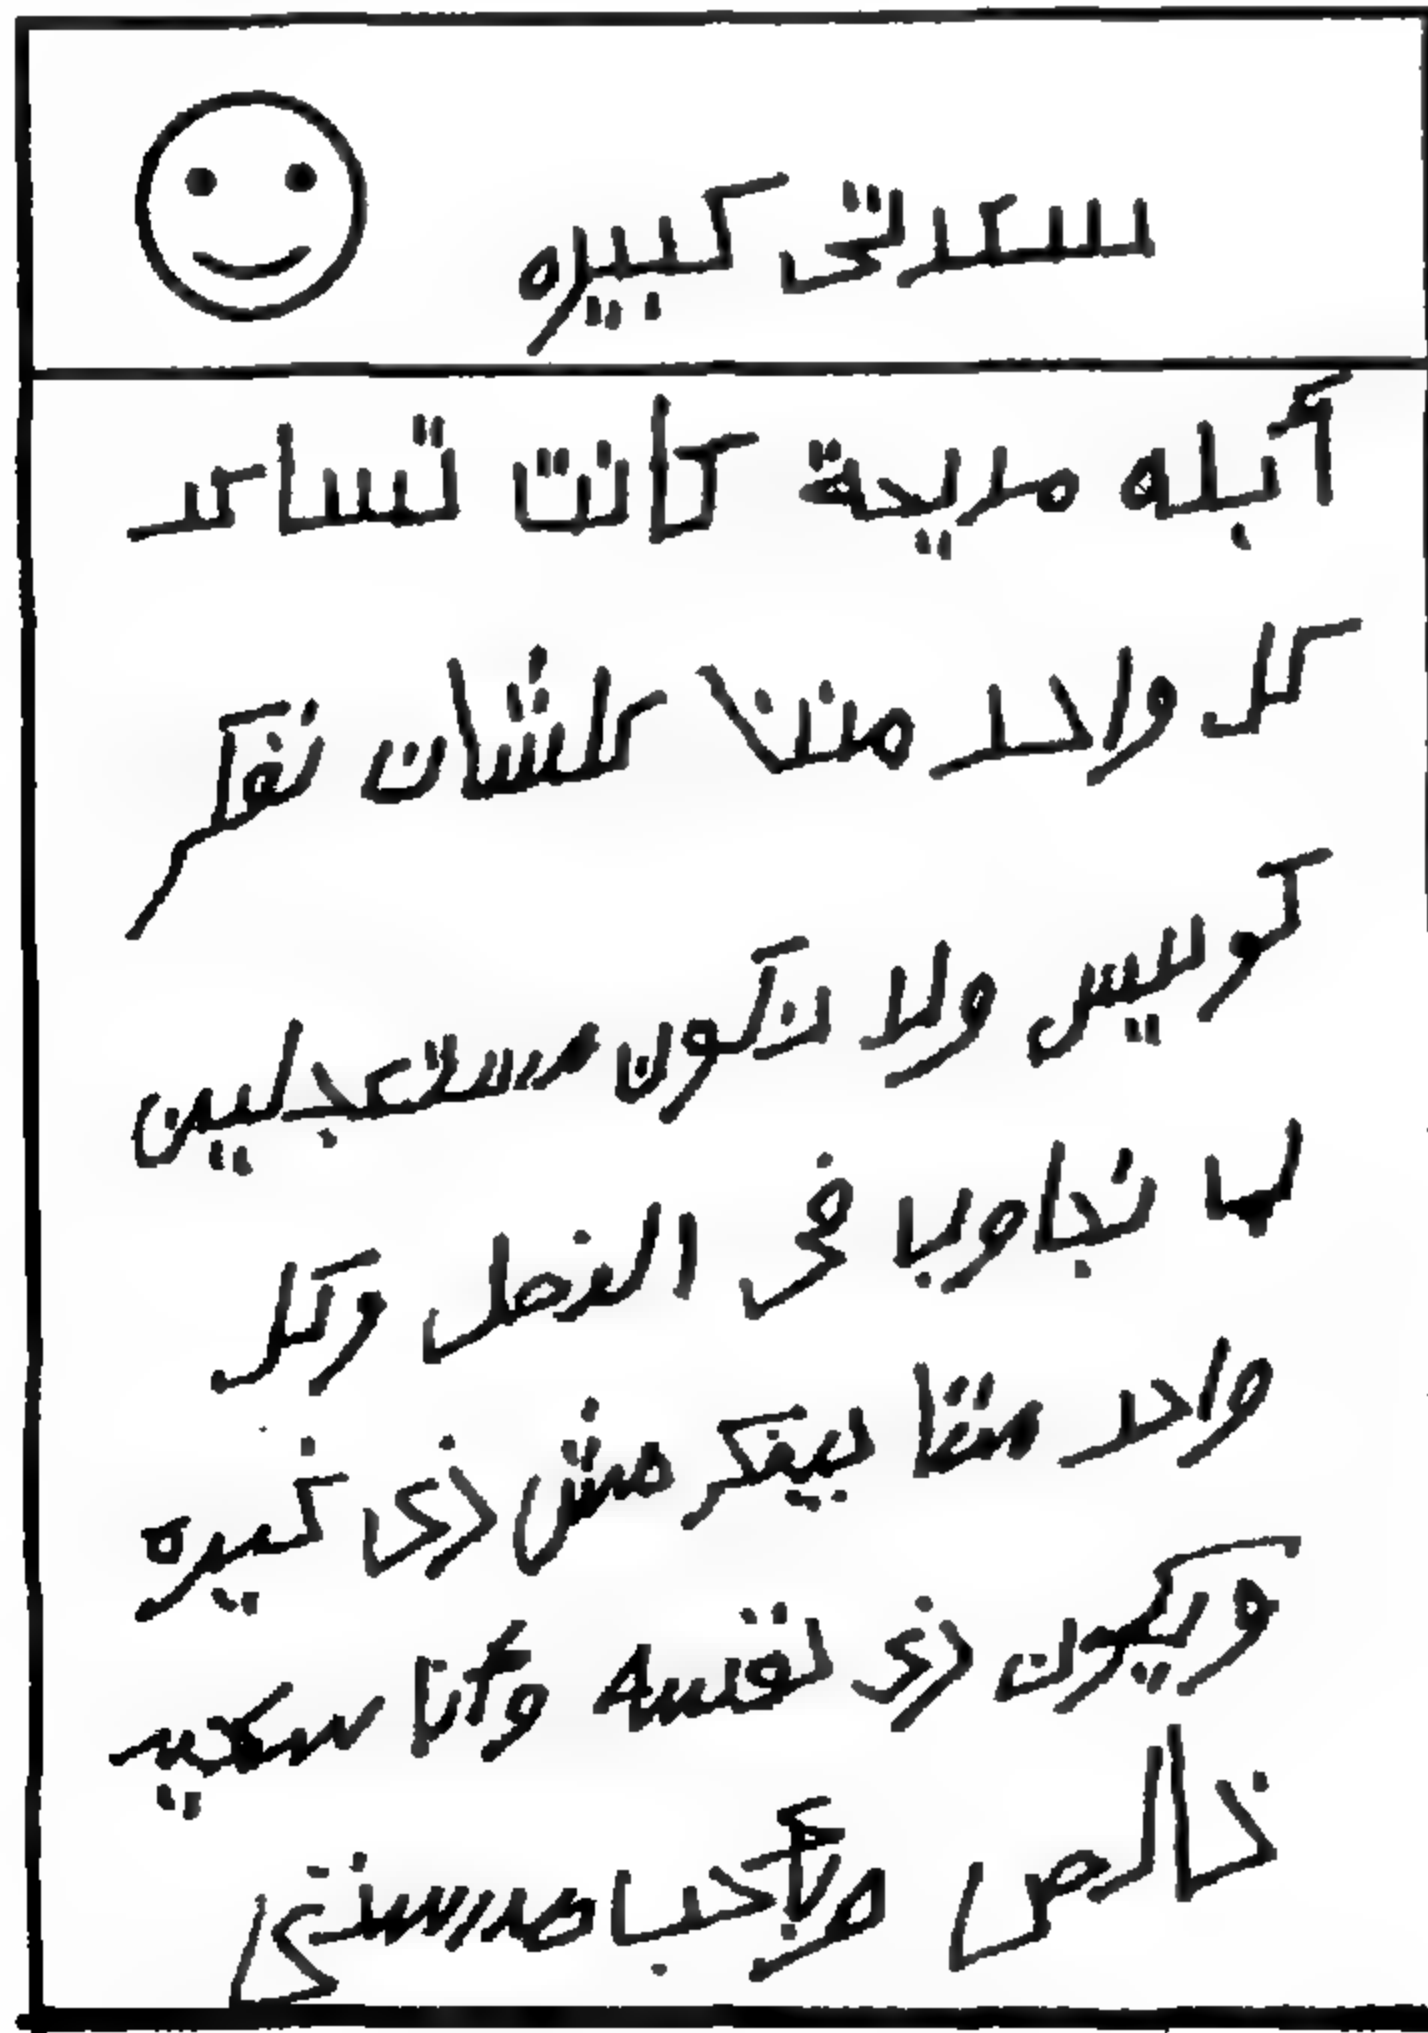 سعدتى كبيره
أبله مديحة كانت تساعد
كل واحد مننا علشان نفكر
كويس ولا نكون مستعجلين
لما نجاوب فى الفصل وكل
واحد مننا بيفكر مش ذى غيره
ويكون ذى نفسه وأنا سعيد
خالص وبأحب مدرستى